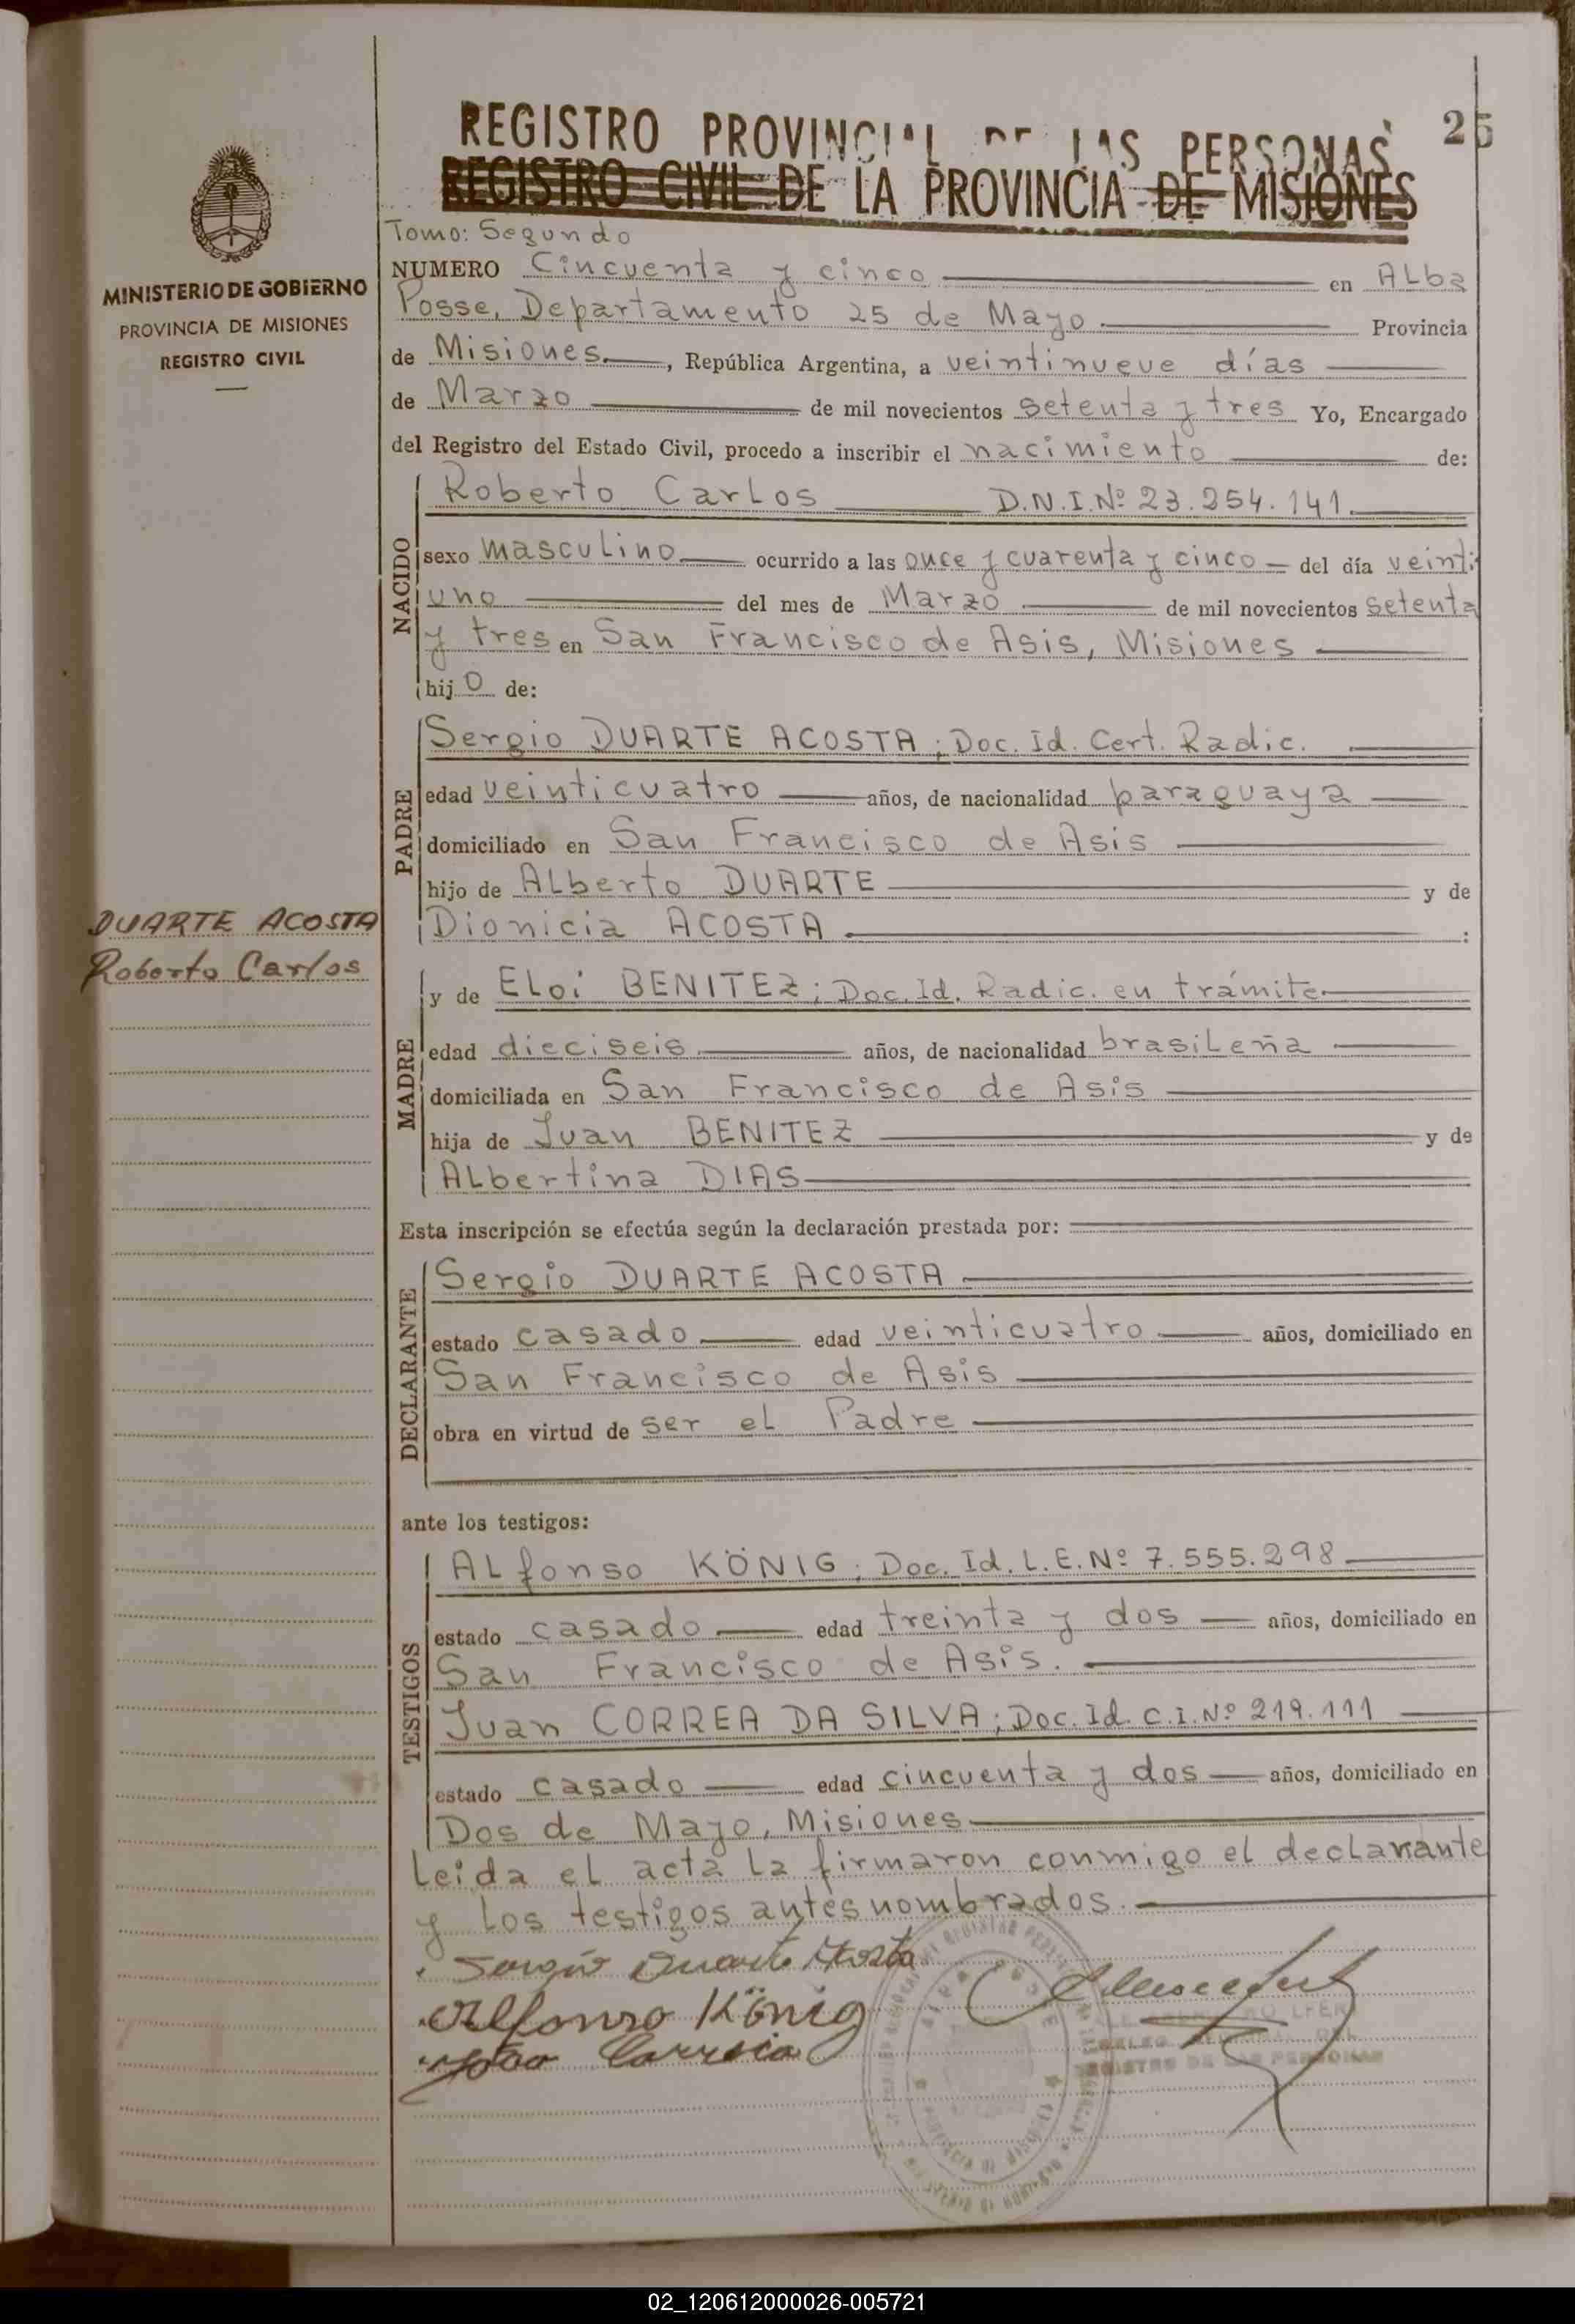 REGISTRO PROVINCIAL DE LAS PERSONAS
25
REGISTRO CIVIL DE LA PROVINCIA DE MISIONES
MINISTERIO DE GOBIERNO
PROVINCIA DE MISIONES
REGISTRO CIVIL
Tomo: Segundo
NUMERO Cincuenta y cinco en ALba
Posse, Departamento 25 de Mayo Provincia
de Misiones, República Argentina, a veintinueve días
de Marzo de mil novecientos setenta y tres Yo, Encargado
del Registro del Estado Civil, procedo a inscribir el nacimiento de:
NACIDO
Roberto Carlos D.N.I.Nº 23.254.141.
sexo masculino ocurrido a las once y cuarenta y cinco del día veinti
uno del mes de Marzo de mil novecientos setenta
y tres en San Francisco de Asis, Misiones
hijo de:
PADRE
Sergio DUARTE ACOSTA; Doc. Id. Cert. Radic.
edad veinticuatro años, de nacionalidad paraguaya
domiciliado en San Francisco de Asis
hijo de Alberto DUARTE y de
Dionicia ACOSTA.:
DUARTE ACOSTA
Roberto Carlos
MADRE
y de Eloi BENITEZ; Doc. Id. Radic. en trámite
edad dieciseis años, de nacionalidad brasileña
domiciliada en San Francisco de Asis
hija de Juan BENITEZ y de
Albertina DIAS
Esta inscripción se efectúa según la declaración prestada por:
DECLARANTE
Sergio DUARTE ACOSTA
estado casado edad veinticuatro años, domiciliado en
San Francisco de Asis
obra en virtud de ser el Padre
ante los testigos:
TESTIGOS
Alfonso KÖNIG; Doc. Id. L.E.Nº 7.555.298
estado casado edad treinta y dos años, domiciliado en
San Francisco de Asis.
Juan CORREA DA SILVA; Doc. Id. C.I.Nº 219.111
estado casado edad cincuenta y dos años, domiciliado en
Dos de Mayo, Misiones
Leida el acta la firmaron conmigo el declarante
y los testigos antes nombrados.
Sergio Duarte Acosta
Alfonso König
João Correia
REGISTRO DE LAS PERSONAS
02_120612000026-005721